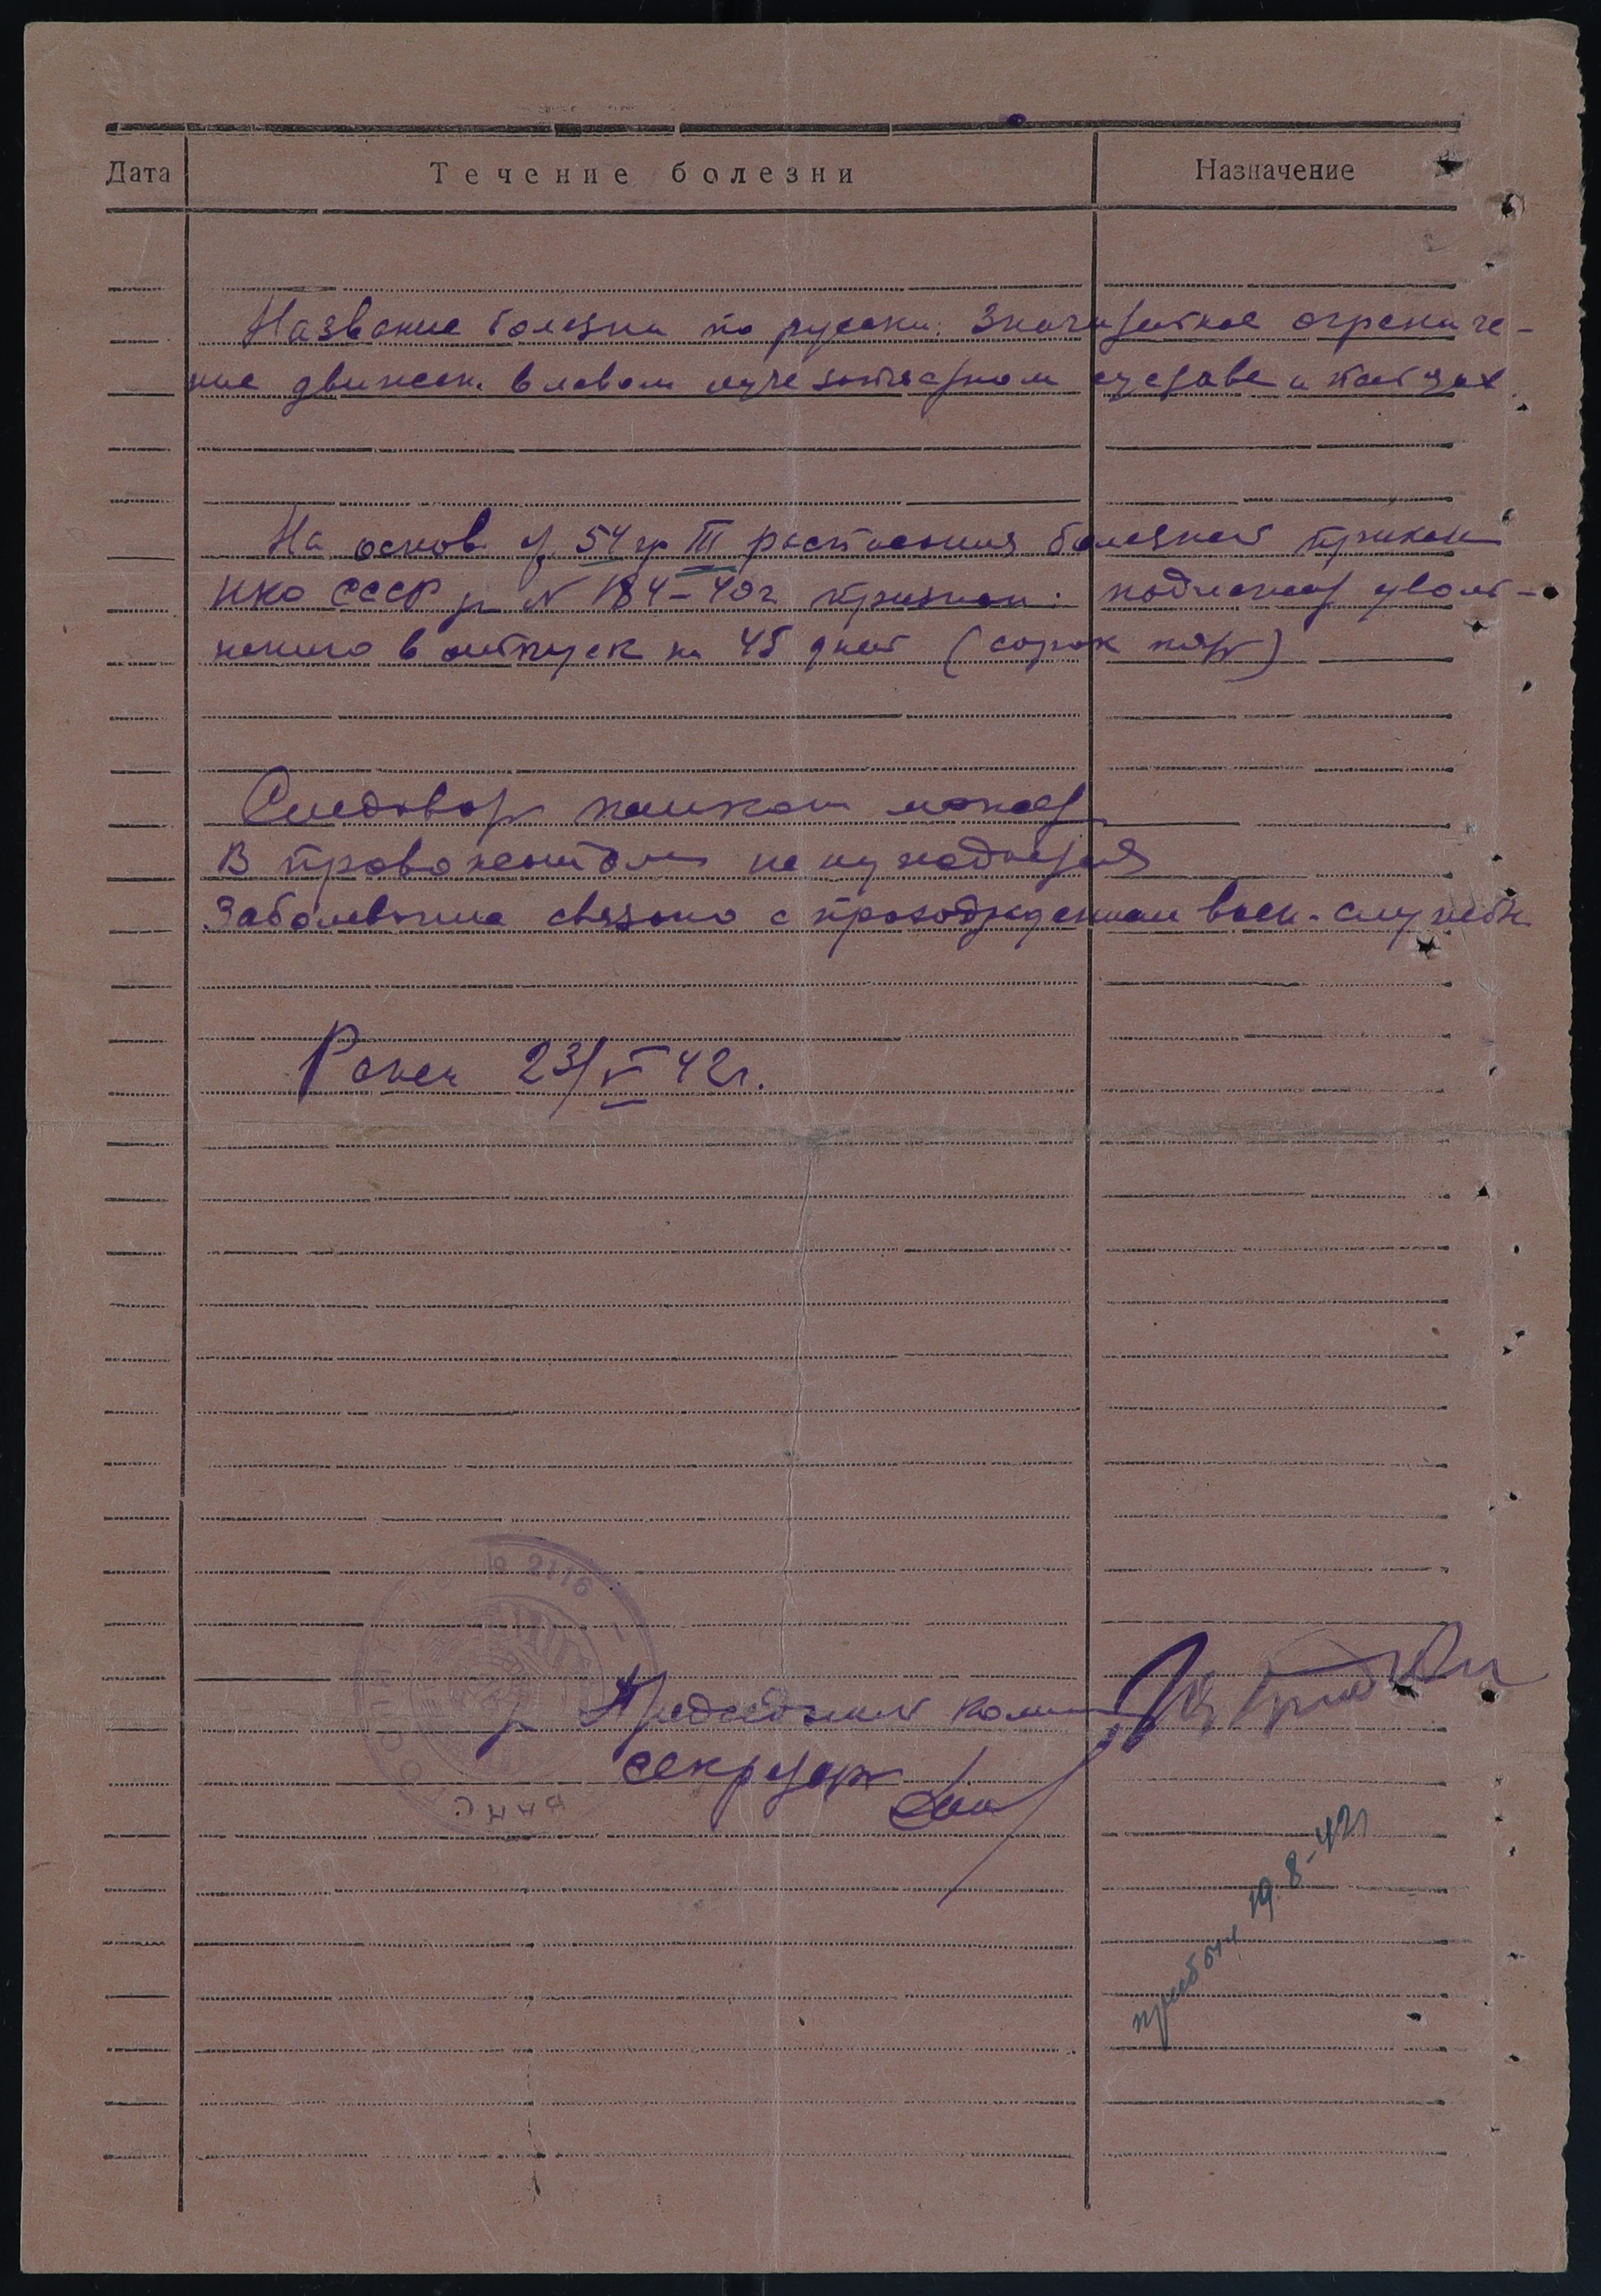 Дата Течение болезни Назначение
Название болезни по русски: Значительное ограниче-
ние движен. в левом лучезапястном суставе и пальцах
На основ. ст. 54 гр III расписания болезней приказ
НКО СССР № 184-40г признан: подлежащ уволь-
нению в отпуск на 45 дней (сорок пять)
Следовать пешком может
В провожатом не нуждается
Заболевание связано с прохождением воен-службы
Ранен 23/V 42г.
№ 2116
Председатель комис
секретарь
прибыл 19.8-42г